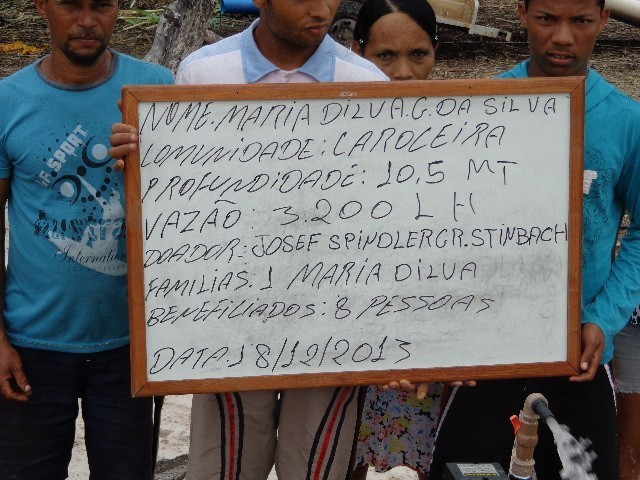 NOME. MARIA DILVA.G. DA SILVA
COMUNIDADE: CAROCEIRA
PROFUNDIDADE: 10,5 MT
VAZÃO: 3.200 L H
DOADOR: JOSEF SPINDLERGR. STINBACH
FAMILIAS: 1 MARIA DILVA
BENEFILIADOS: 8 PESSOAS
DATA 18/12/2013
SPORT